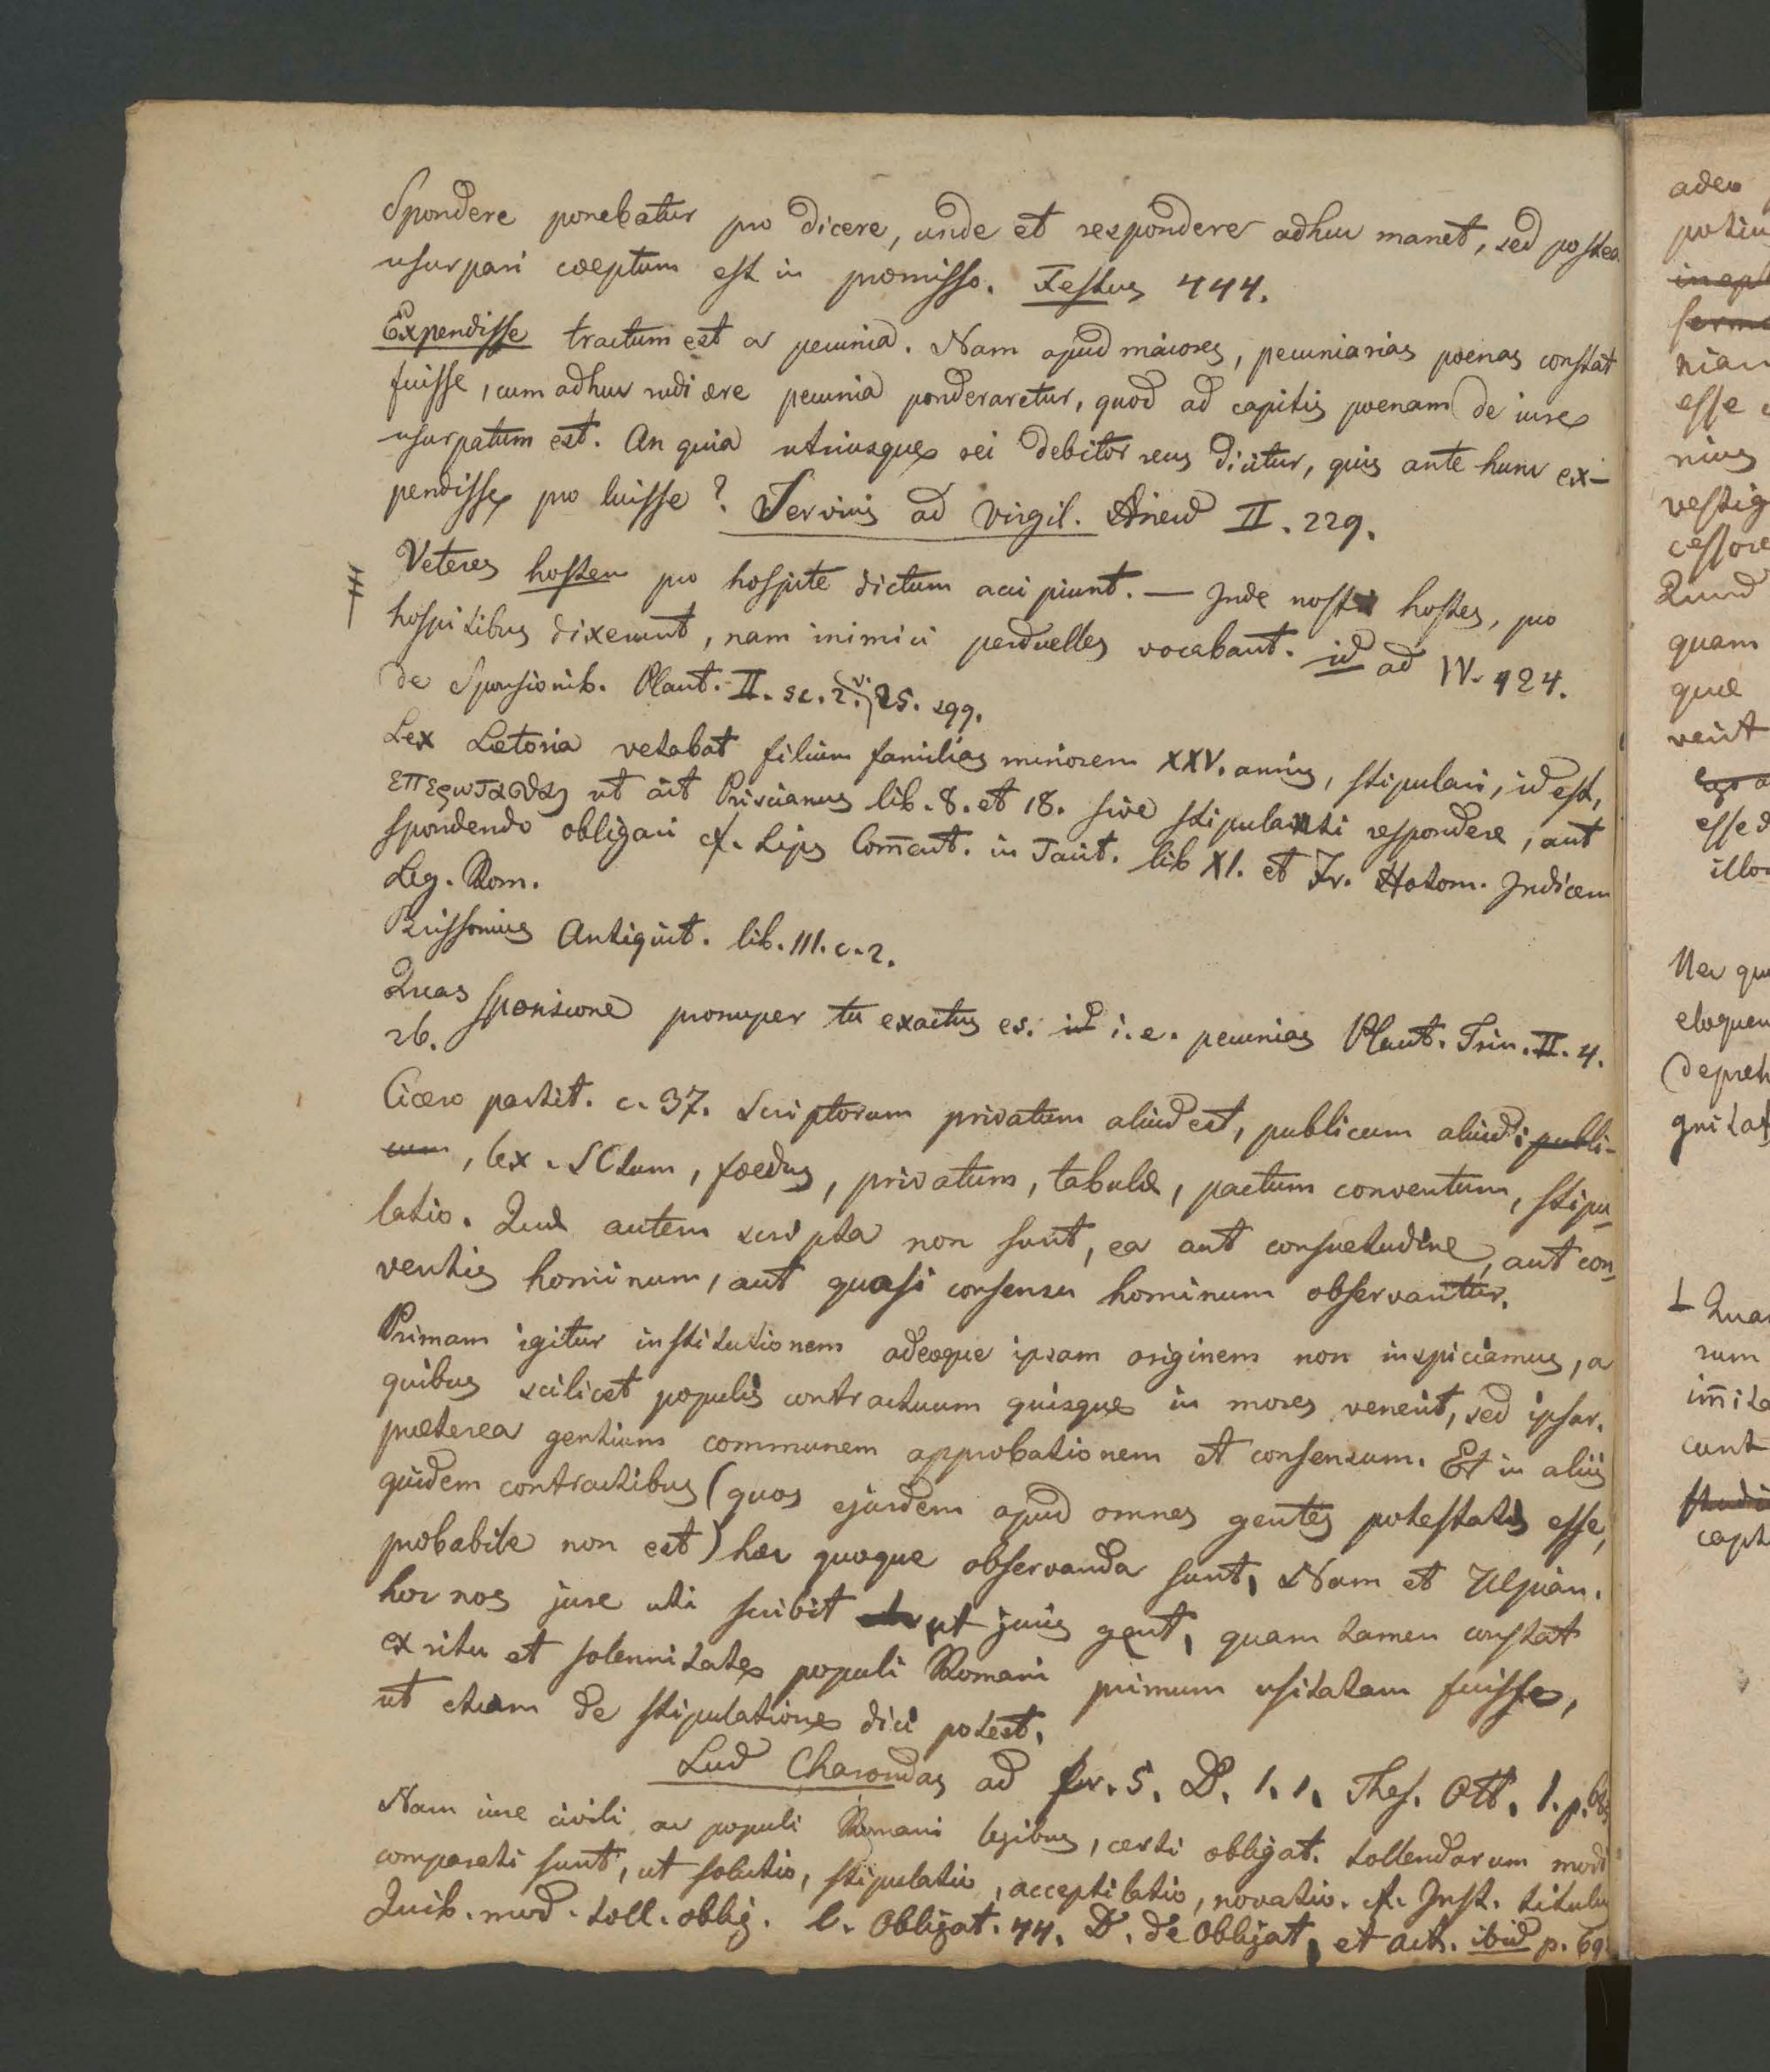 Spondere ponebatur pro dicere, unde et respondere adhuc manet, sed postea
usurpari coeptum est in promisso. Festus 444.
Expendisse tractum est a pecunia. Nam apud maiores, pecuniarias poenas constat
fuisse, cum adhuc rudi ære pecunia ponderaretur, quod ad capitis poenam de iure
usurpatum est. An quia utriusque rei debitor reus dicitur, quis ante hunc ex-
pendisse pro luisse? Servius ad Virgil. Æneid II. 229.
Veteres hostem pro hospite dictum accipiunt. — Inde nostri hostes, pro
hospitibus dixerunt, nam inimici perduelles vocabant. id ad IV. 424.
de Sponsionib. Plaut. II. sc. 2. v. 25. sqq.
Lex Lætoria vetabat filium familias minorem XXV. annis, stipulari, id est,
επερωτασθαι ut ait Priscianus lib. 8. et 18. sive stipulanti respondere, aut
spondendo obligari cf. Lips Com̅ent. in Tacit. lib XI. et Fr. Hotom. Indicem
Leg. Rom.
Brissonius Antiquit. lib. III. c. 2.
Quas sponsione pronuper tu exactus es. id i. e. pecunias Plaut. Trin. II. 4.
26.
Cicero partit. c. 37. Scriptorum privatum aliud est, publicum aliud; publi-
cum, lex. SCtum, foedus, privatum, tabulæ, pactum conventum, stipu-
latio. Quæ autem scripta non sunt, ea aut consuetudine, aut con-
ventis hominum, aut quasi consensu hominum observantur.
Primam igitur institutionem adeoque ipsam originem non inspiciamus, a
quibus scilicet populis contractuum quisque in mores venerit, sed ipsar.
præterea gentium communem approbationem et consensum. Et in aliis
quidem contractibus (quos ejusdem apud omnes gentes potestatis esse,
probabile non est) hæc quoque observanda sunt, Nam et Ulpian.
hoc nos jure uti scribit ut juris gent, quam tamen constat
ex ritu et solennitate populi Romani primum usitatam fuisse,
ut etiam de stipulatione dici potest.
Lud Charondas ad fr. 5. D. 1. 1. Thes. Ott. 1. p.
Nam iure civili ac populi Romani legibus, certi obligat. tollendarum modi
comparati sunt, ut solutio, stipulatio, acceptilatio, novatio. cf. Inst. titulu
Quib. mod. toll. oblig. l. Obligat. 44. D. de Obligat, et act. ibid p. 69
adeo
potiu
inept
serm
nian
esse
nius
vestig
cessore
Quod
quam
quæ
venit
ego a
esse d
illo
Nec qu
eloquen
depreh
gnitat
Qua
rum
im̅ita
cunt
studi
capt